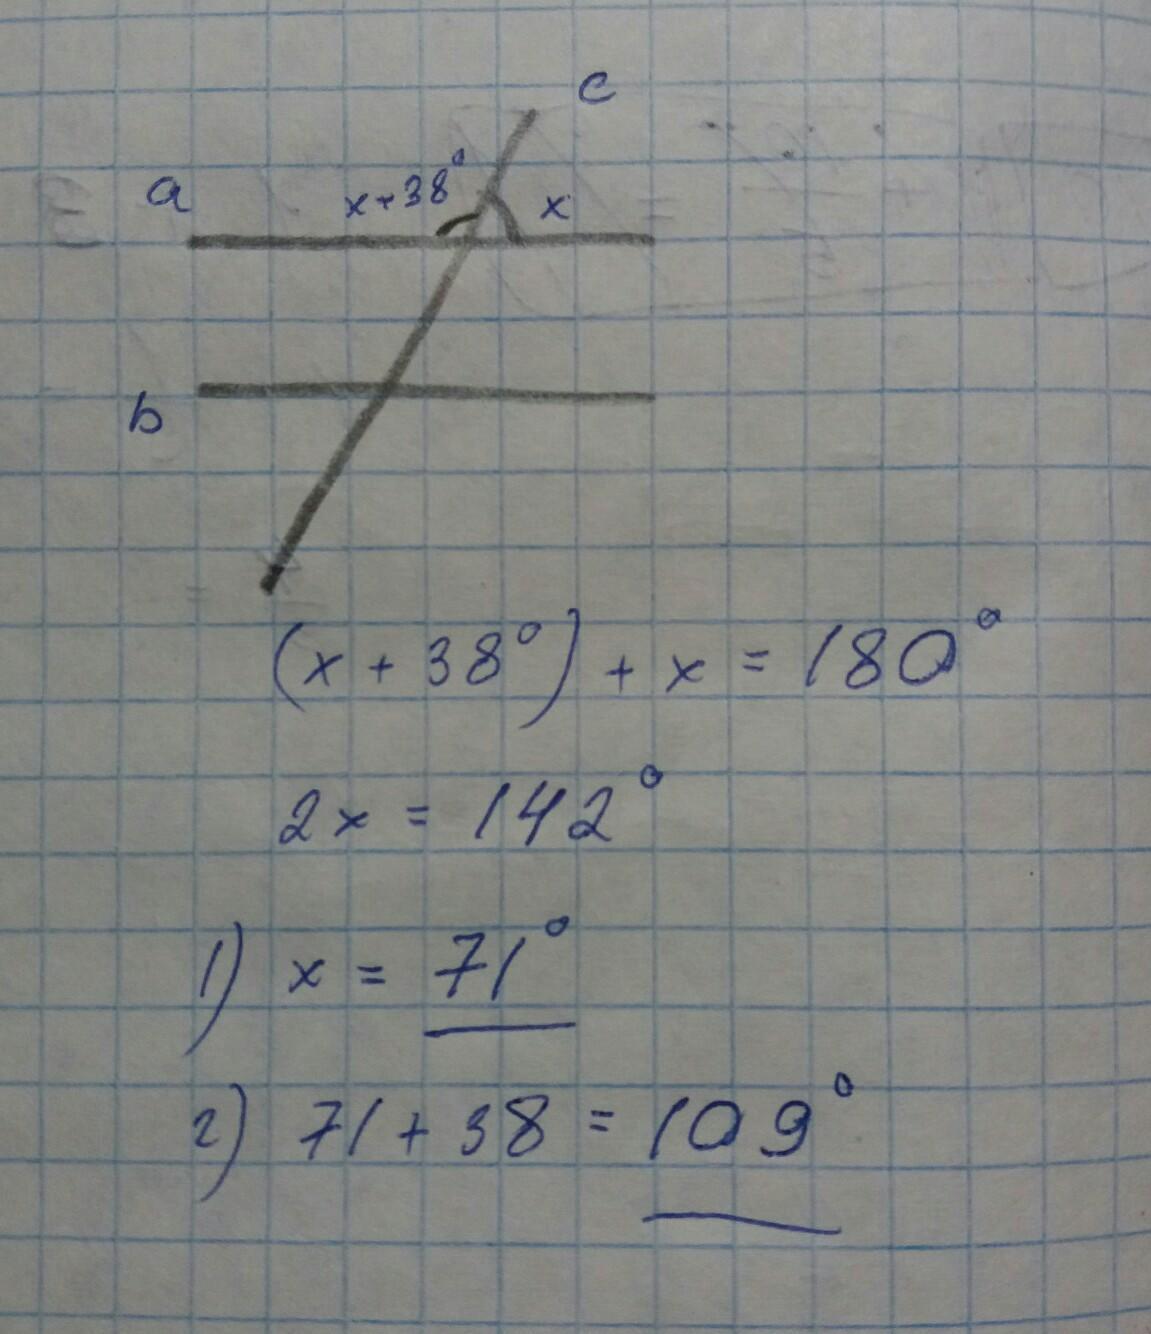 c
a x+38° x
b
(x + 38°) + x = 180°
2x = 142°
1) x = 71°
2) 71 + 38 = 109°